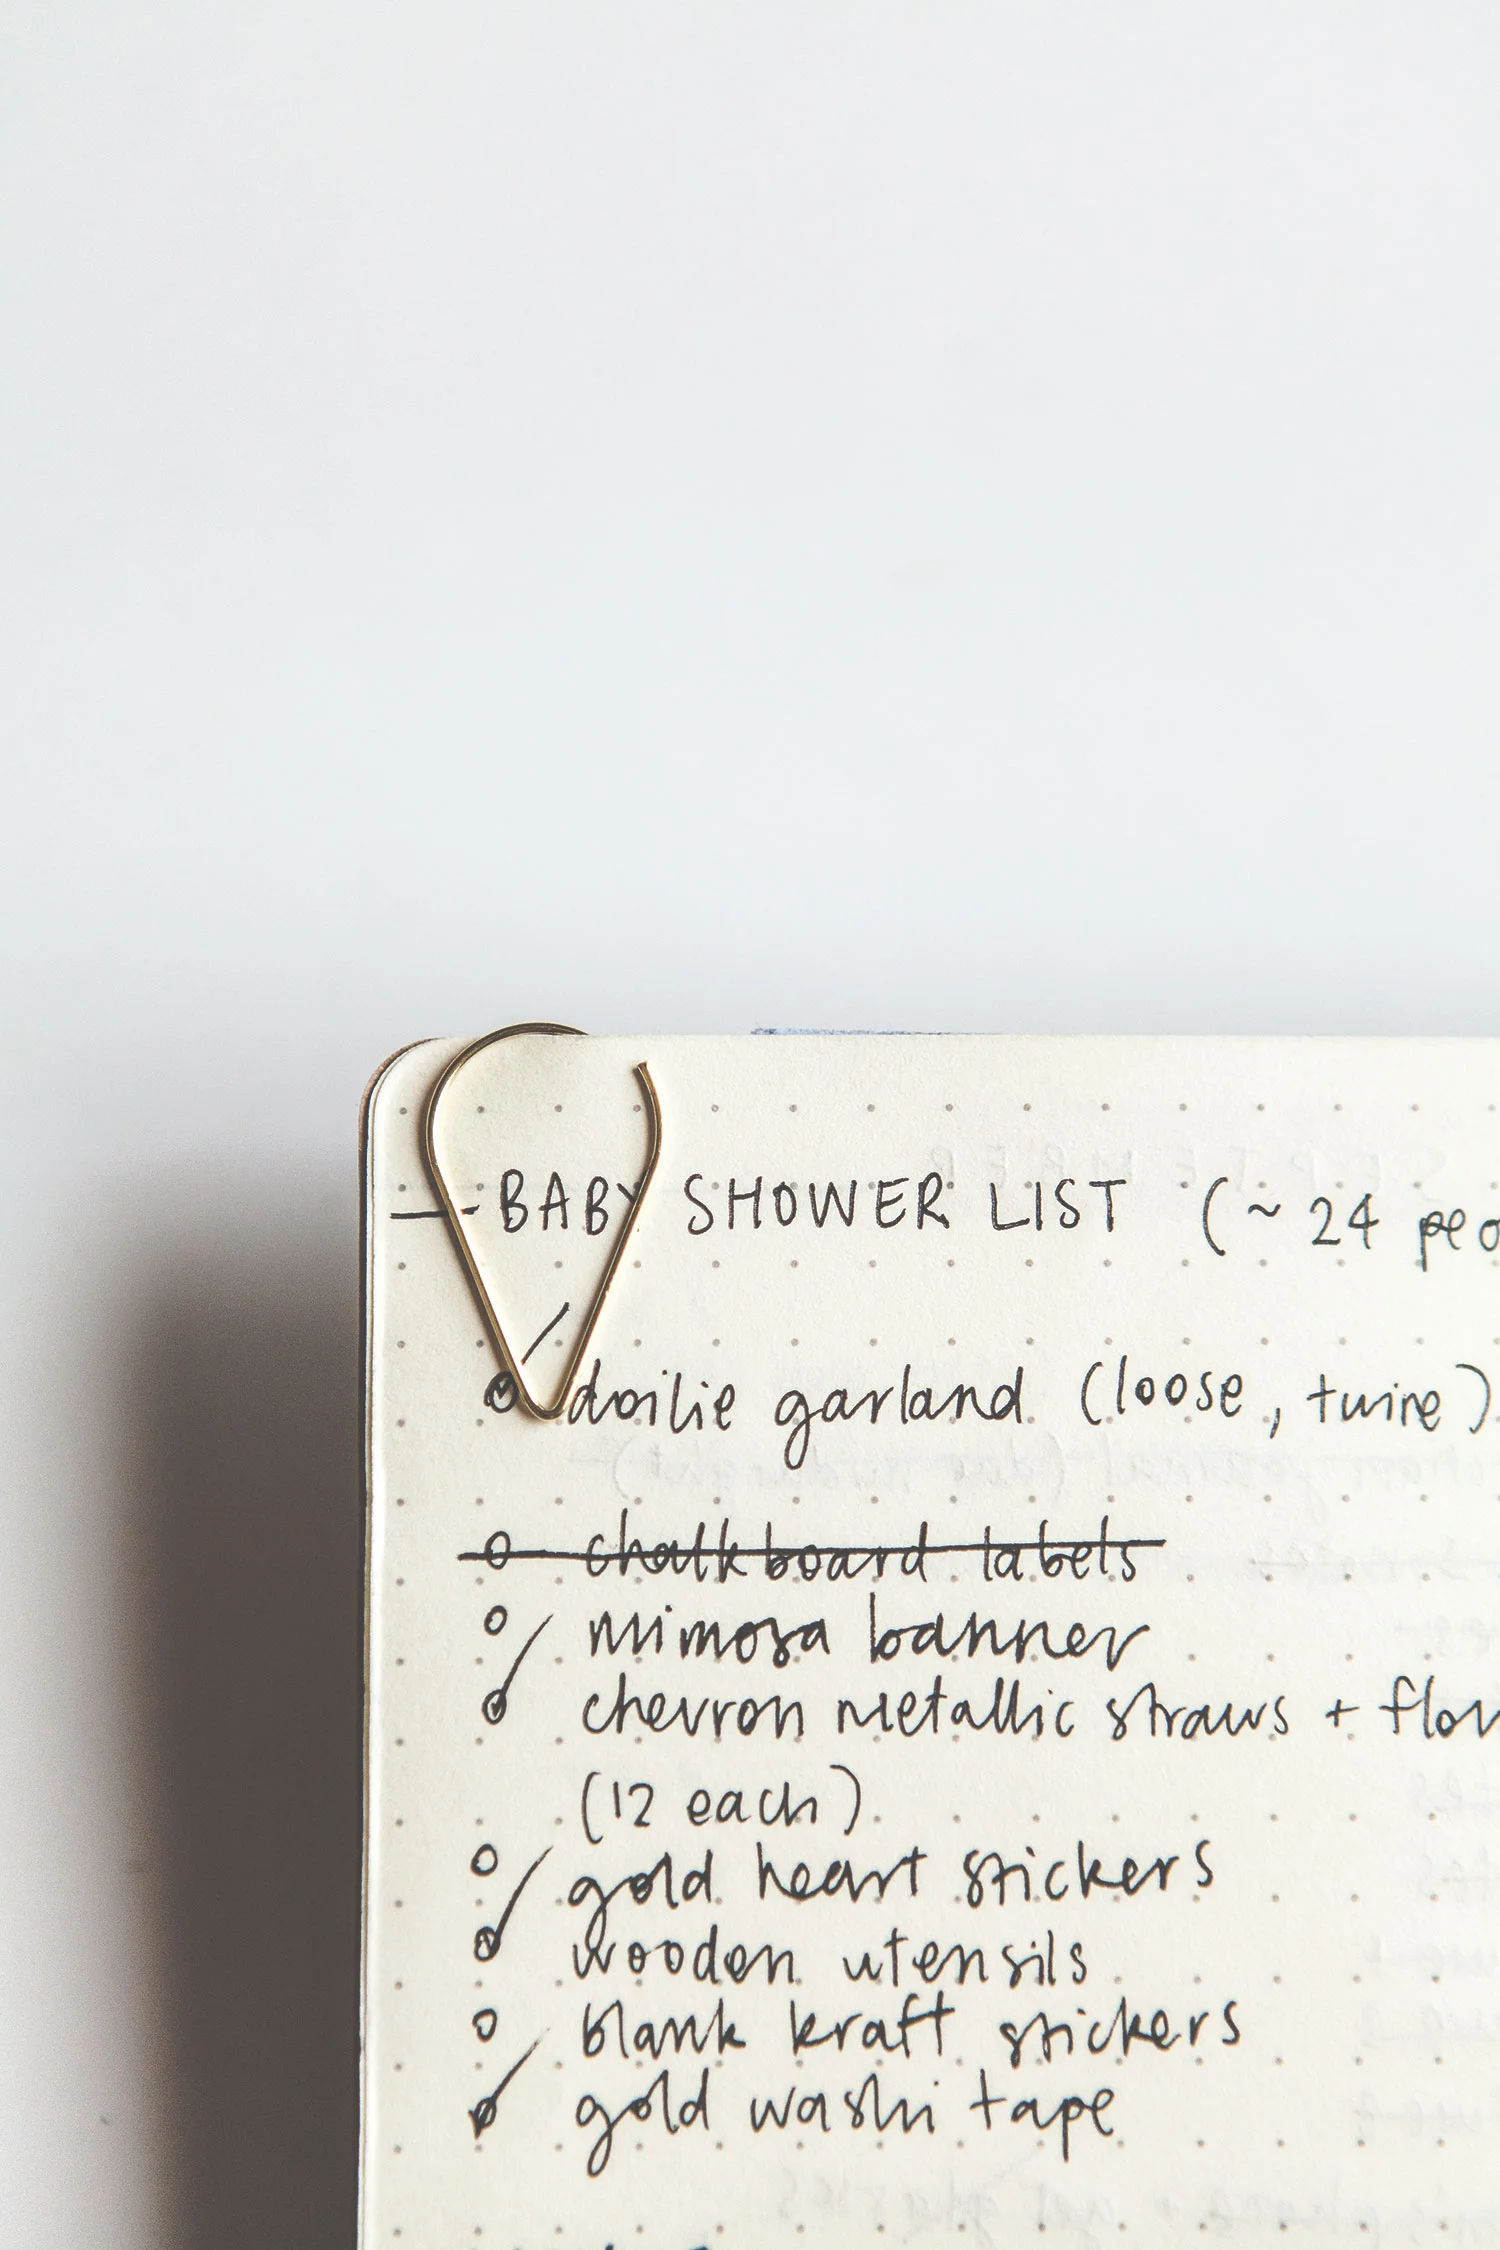 — BABY SHOWER LIST (~ 24 peo
doilie garland (loose, twine)
chalkboard labels
mimosa banner
chevron metallic straws + flow
(12 each)
gold heart stickers
wooden utensils
blank kraft stickers
gold washi tape